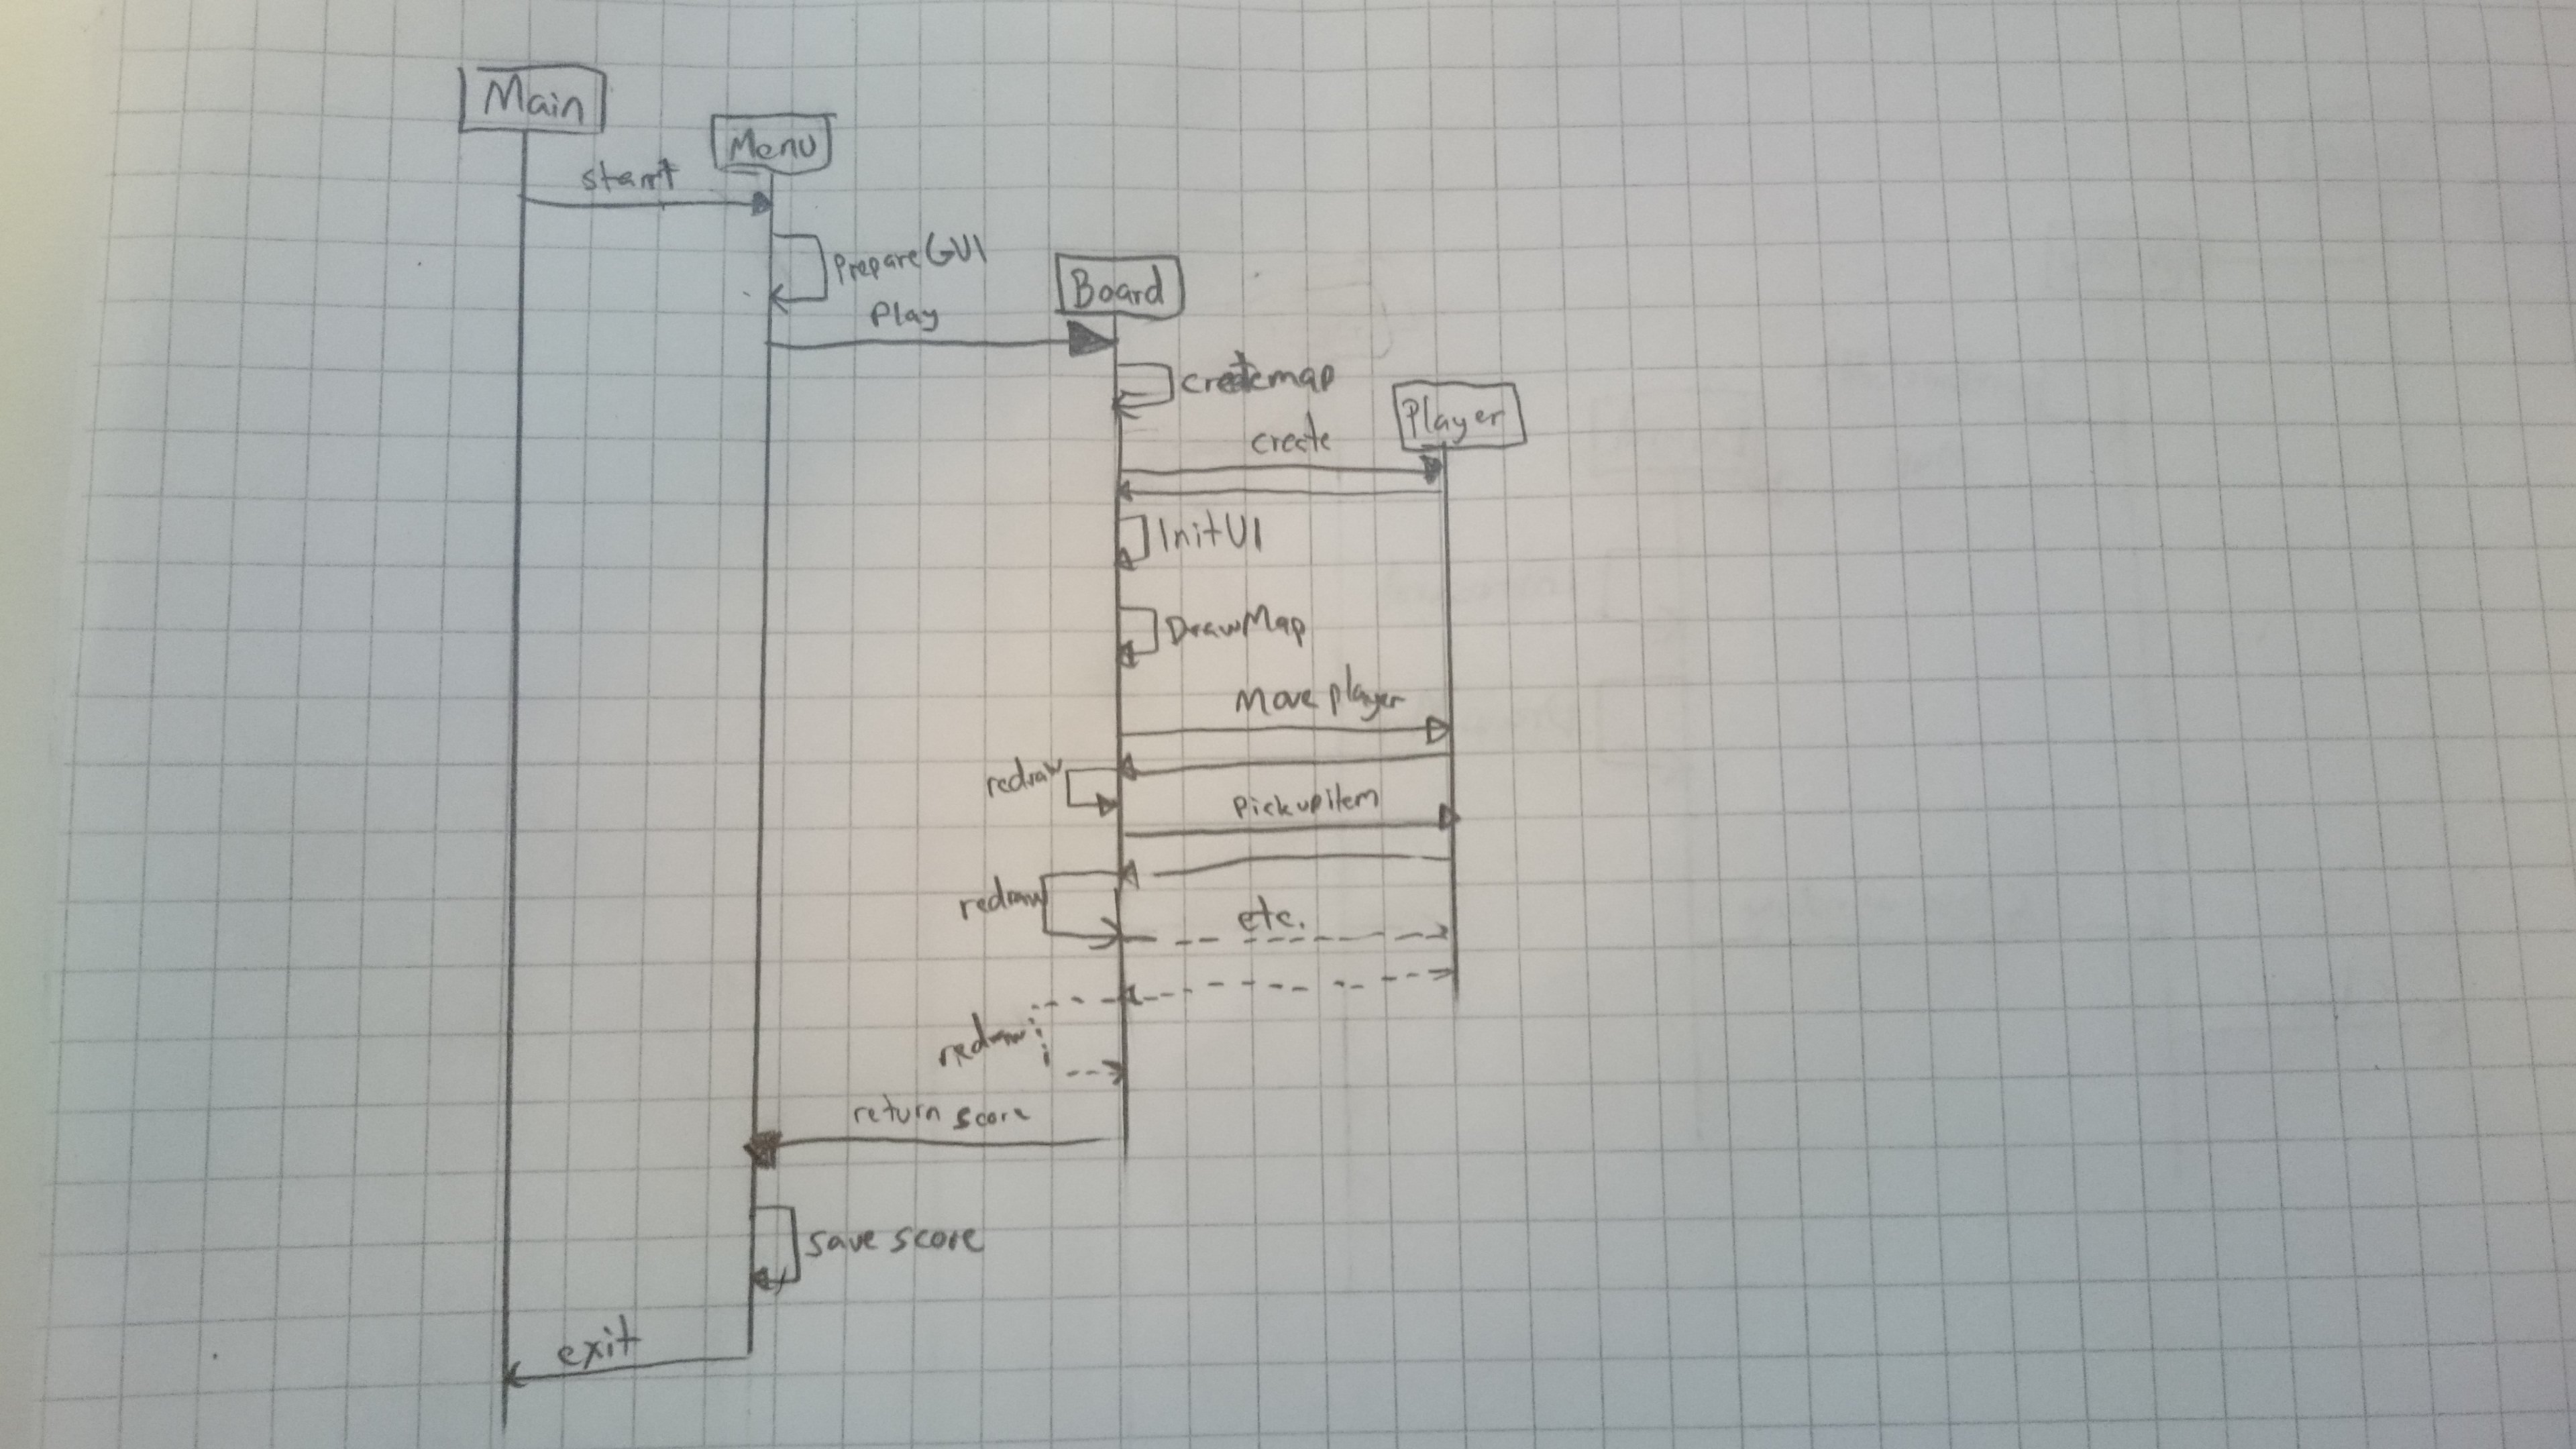 Main
Menu
start
PrepareGUI
Board
Play
createmap
Player
create
InitUI
DrawMap
Move player
redraw
Pickupitem
redraw
etc.
redraw
return score
save score
exit